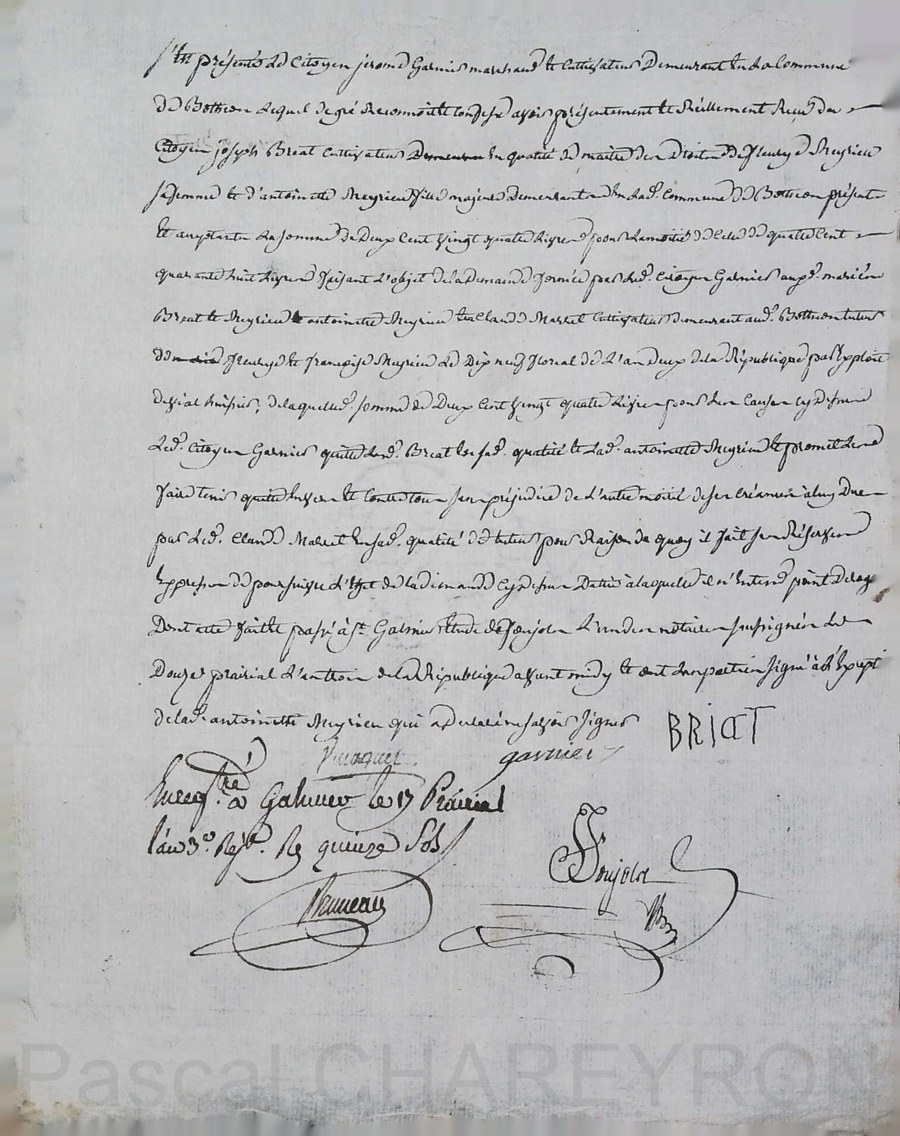 S'est présenté Le Citoyen jerome Garnier marchand et Cultivateur Demeurant En La Commune
de Botheon Lequel de gré Reconnoit et Confesse avoir présentement et Réellement Reçu du
Citoyen joseph Breat Cultivateur En qualité de maitre des Droits de fleurye Meyrieu
sa femme et d'antoinette Meyrieu fille majeure demeurant En Lad. Commune de Botheon présents
et acceptants La somme de Deux Cent Vingt quatre Livres pour La moitié de Celle de quatre Cent
quarante huit Livres faisant L'objet de La Demande formée par Led. Citoyen Garnier aux d. mariés
Breat et Meyrieu antoinette Meyrieu et à Claude Martel Cultivateur demeurant aud. Botheon tuteur
de fleurye et françoise Meyrieu Le Dix neuf floreal de L'an Deux de La République par Exploit
de Vial huissier, de laquelle d. somme de Deux Cent Vingt quatre Livres pour Les Causes cy dessus
Led. Citoyen Garnier quitte Led. Breat En sad. qualité et Lad. antoinette Meyrieu et promet Les
faire tenir quitte Envers et Contre tous sans préjudice de L'autre moitié de ses Créances à luy Due
par Led. Claude Martel En sad. qualité de tuteur pour Raison de quoy il fait ses Réserves
Expresses de poursuivre L'Effet de La demande cy dessus Datée à laquelle il n'Entend point déroger
Dont acte fait et passé à St. Galmier Etude de Ponjolat L'un des notaires soussignés Le
Douze prairial L'an trois de La République avant midy et ont Les parties signé à L'Exception
de lad. antoinette Meyrieu qui a Déclaré ne savoir signer BRIAT
garnier
Enregistré à Galmier le 17 Prairial
l'an 3e. Rep. Rs quinze Sols